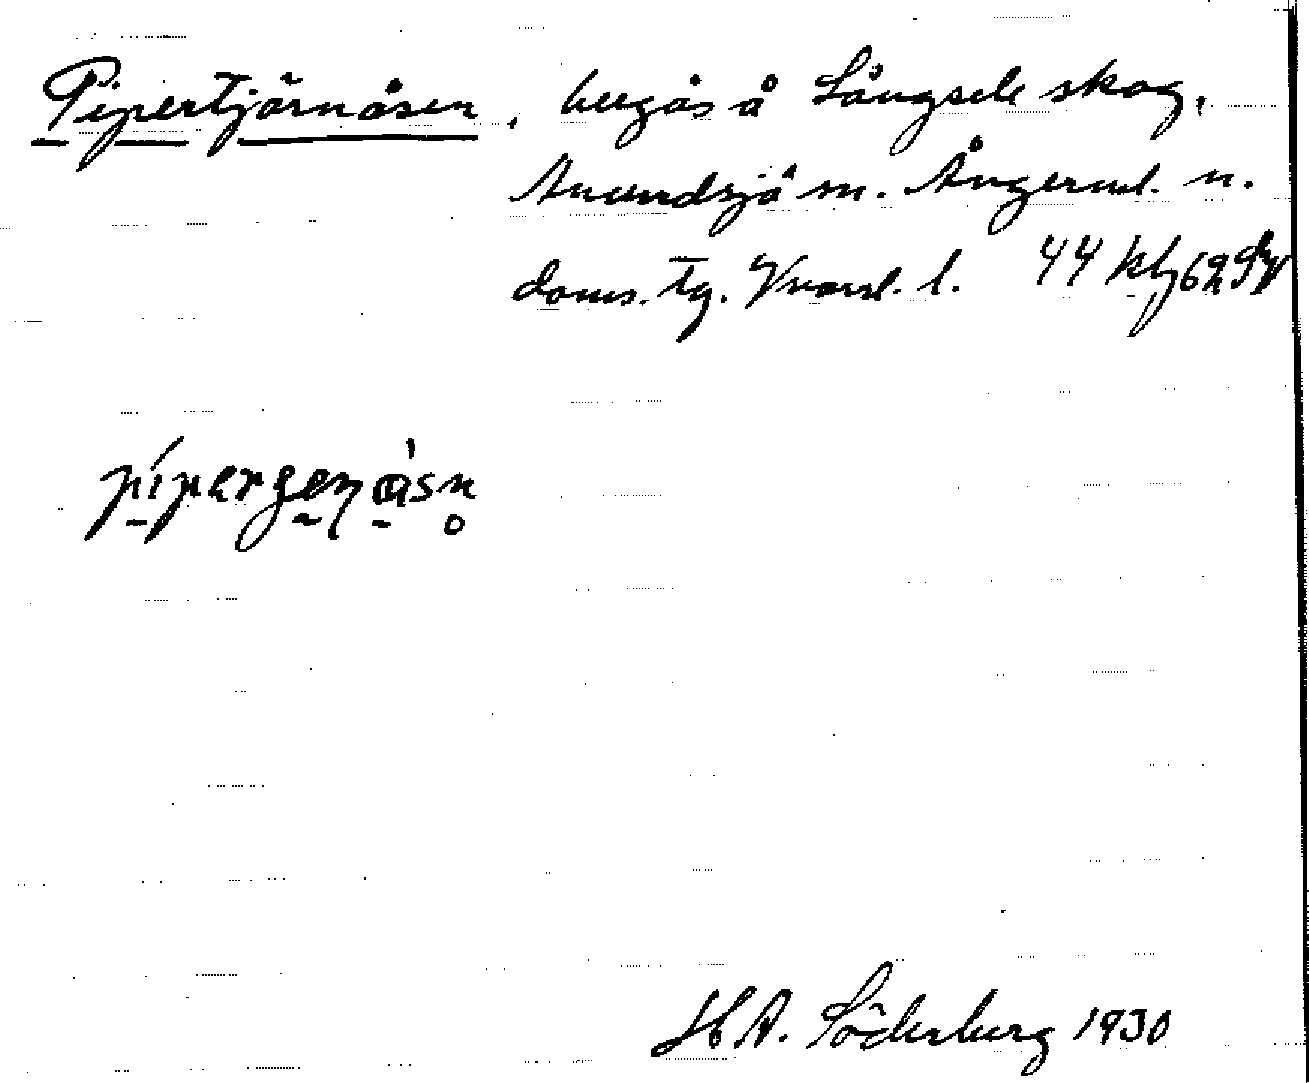 Pipertjärnåsen, bergås å Långsele skog,
Anundsjö sn. Ångerml. n.
doms. tg. Västerl. l. 44
pipergenåsn
H A. Söderberg 1930